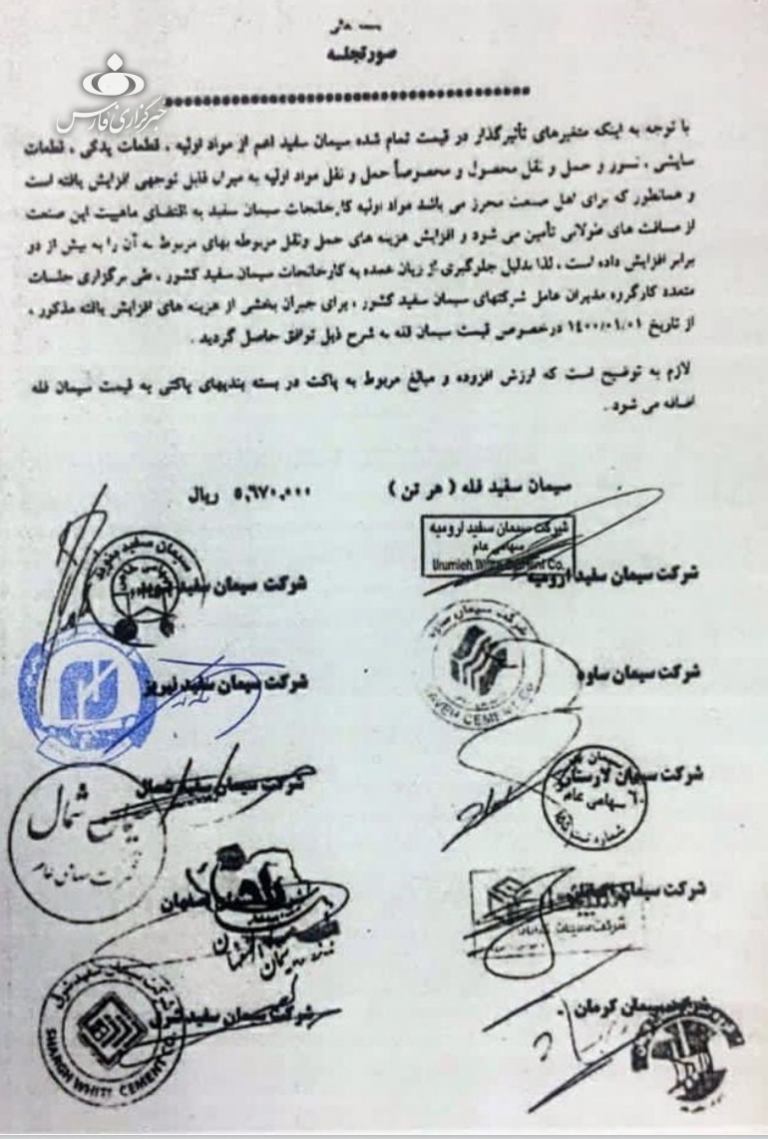 بسمه تعالی
صورتجلسه
خبرگزاری فارس
با توجه به اینکه متغیرهای تأثیرگذار در قیمت تمام شده سیمان سفید اعم از مواد اولیه ، قطعات یدکی ، قطعات
سایشی ، نسوز و حمل و نقل محصول و مخصوصاً حمل و نقل مواد اولیه به میزان قابل توجهی افزایش یافته است
و همانطور که برای اهل صنعت محرز می باشد مواد اولیه کارخانجات سیمان سفید به اقتضای ماهیت این صنعت
از مسافت های طولانی تأمین می شود و افزایش هزینه های حمل ونقل مربوطه بهای مربوط به آن را به بیش از دو
برابر افزایش داده است ، لذا بدلیل جلوگیری از زیان عمده به کارخانجات سیمان سفید کشور ، طی برگزاری جلسات
متعدد کارگروه مدیران عامل شرکتهای سیمان سفید کشور ، برای جبران بخشی از هزینه های افزایش یافته مذکور ،
از تاریخ ۱۴۰۰/۰۱/۰۱ درخصوص قیمت سیمان فله به شرح ذیل توافق حاصل گردید .
لازم به توضیح است که ارزش افزوده و مبالغ مربوط به پاکت در بسته بندیهای پاکتی به قیمت سیمان فله
اضافه می شود .
سیمان سفید فله ( هر تن ) ۵,۶۷۰,۰۰۰ ریال
شرکت سیمان سفید ارومیه
سهامی عام
Urumieh White Cement Co.
شرکت سیمان سفید ارومیه
شرکت سیمان سفید
شرکت سیمان ساوه
شرکت سیمان ساوه
SAVEH CEMENT CO
شرکت سیمان سفید نیریز
شرکت سیمان لارستان
سهامی عام
شماره ثبت
شرکت سیمان سفید شمال
شمال
شرکت سیمان
اصفهان
شرکت سیمان کرمان
شرکت سیمان سفید شرق
شرکت سیمان سفید شرق
SHARGH WHITE CEMENT CO.